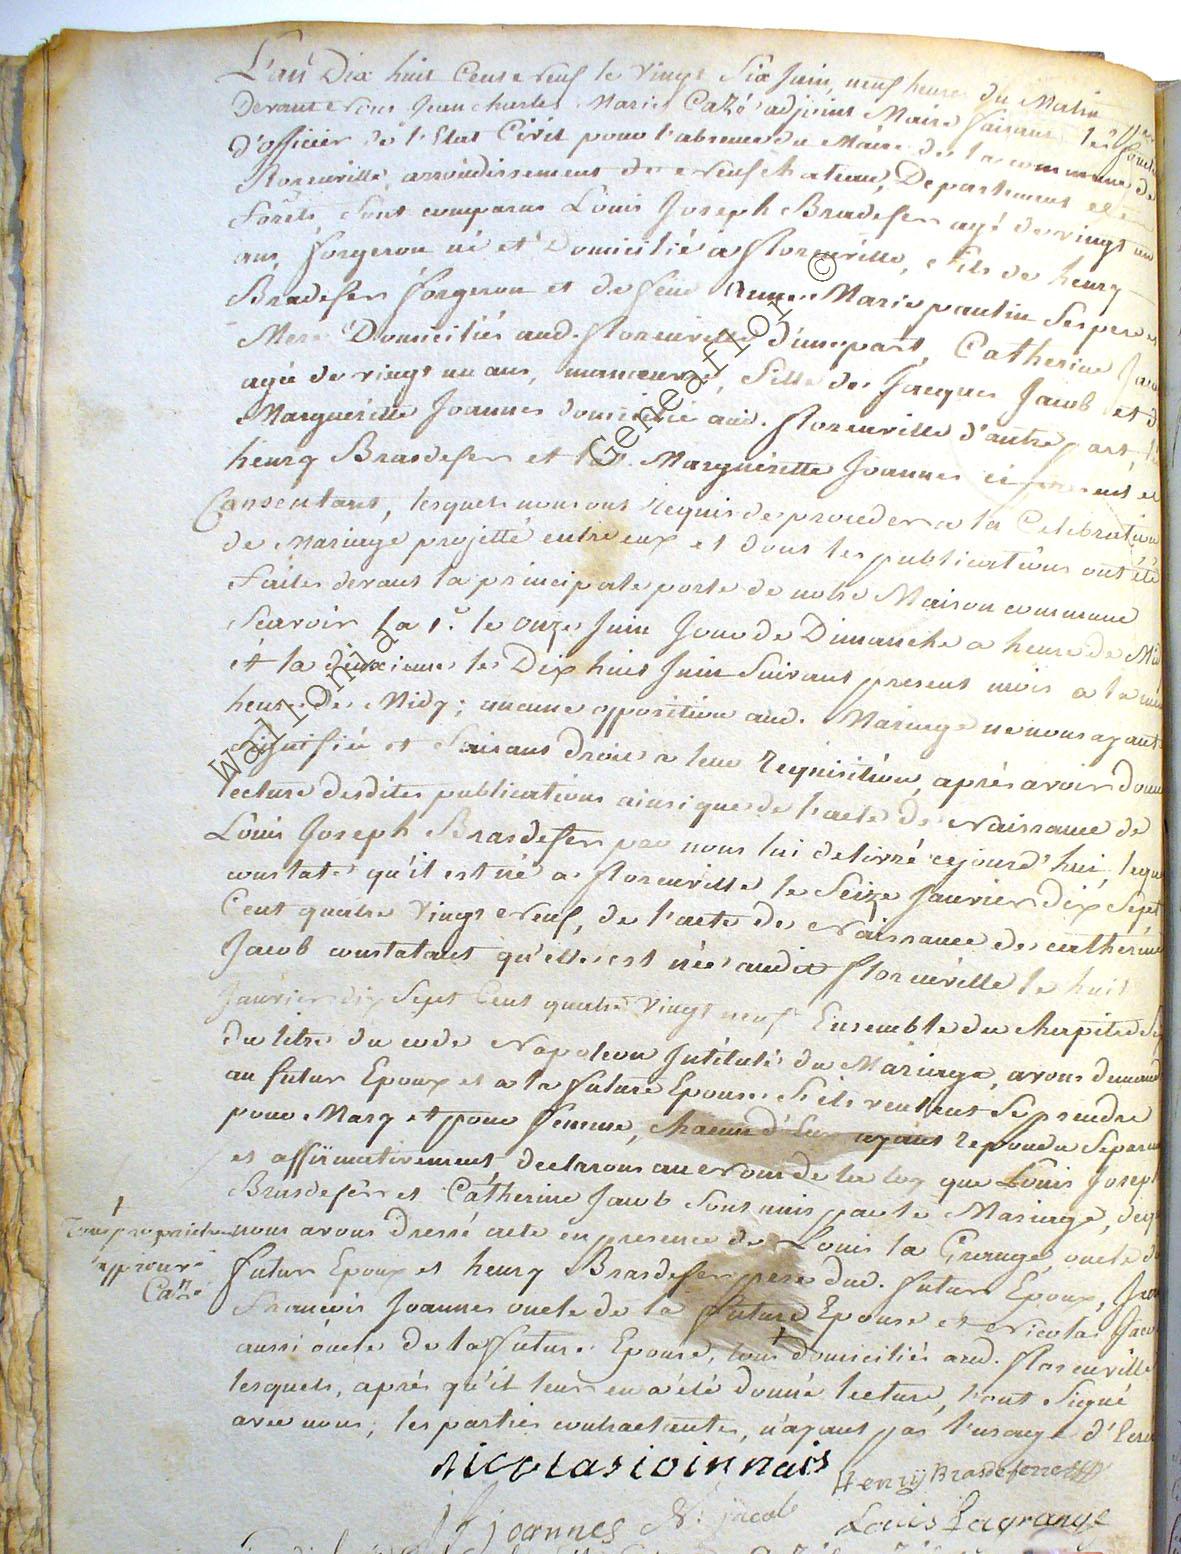 L'an Dix huit Cent neuf le Vingt Six Juin, neuf heures du Matin
Devant Nous Jean Charles Marie Cazé adjoint Maire faisant les
d'officier de l'Etat Civil pour l'absence du Maire de la commune de
florenville, arrondissement de Neufchateau, Departement des
Forêts Sont comparus Louis Joseph Bradefer agé de vingt un
ans, forgeron né et Domicilié a florenville, fils de henry
Bradefer forgeron et de feue Anne Marie paulin Ses pere et
Mere Domiciliés aud. florenville d'une part, Catherine
agée de vingt un ans, manoeuvre, fille de Jacques Jacob et d
Margueritte Joannes domiciliée aud. florenville d'autre part,
henry Brasdefer et lad. Margueritte Joannes ci presents et
Consentant, lesquels nous ont requis de proceder a la Celebration
de Mariage projetté entre eux et dont les publications ont été
faites devant la principale porte de notre Maison commune
Scavoir la 1e. le onze Juin Jour de Dimanche a heure de Mid
et la deuxieme le Dix huit Juin Suivant present mois a la
heure de Midy; aucune opposition aud. Mariage ne nous ayant
signifiée et faisant droit a leur requisition, après avoir donné
lecture desdites publications ainsi que de l'acte de Naissance de
Louis Joseph Brasdefer par nous lui delivré cejourd'hui, lequel
constate qu'il est né a florenville le Seize Janvier dix Sept
Cent quatre Vingt Neuf, de l'acte de Naissance de catherine
Jacob constatant qu'elle est née audit florenville le huit
Janvier dix Sept Cent quatre Vingt neuf Ensemble du chapitre
du titre du code Napoleon Intitulé du Mariage, avons demand
au futur Epoux et a la future Epouse S'ils veulent Se prendre
pour Mary et pour femme, chacun d'Eux ayant repondu Separem
et affirmativement, declarons au Nom de la loy que Louis Joseph
Brasdefer et Catherine Jacob Sont unis par le Mariage, de
nous avons Dressé acte en presence de Louis la Grange, oncle d
futur Epoux et henry Brasdefer pere dud. futur Epoux,
francois Joannes oncle de la future Epouse et Nicolas Jaco
aussi oncle de la future Epouse, tous † domiciliés aud. florenville
lesquels, après qu'il leur en a été donné lecture, l'ont Signé
avec nous, les parties contractantes, n'ayant pas l'usage d'
†
Tous proprietaires
approuvé
Cazé
Nicolas ioinnais
Henrÿ Brasdeferre
joannes
N: jacob
Louis Lagrange
Wallonia © GeneaFlor